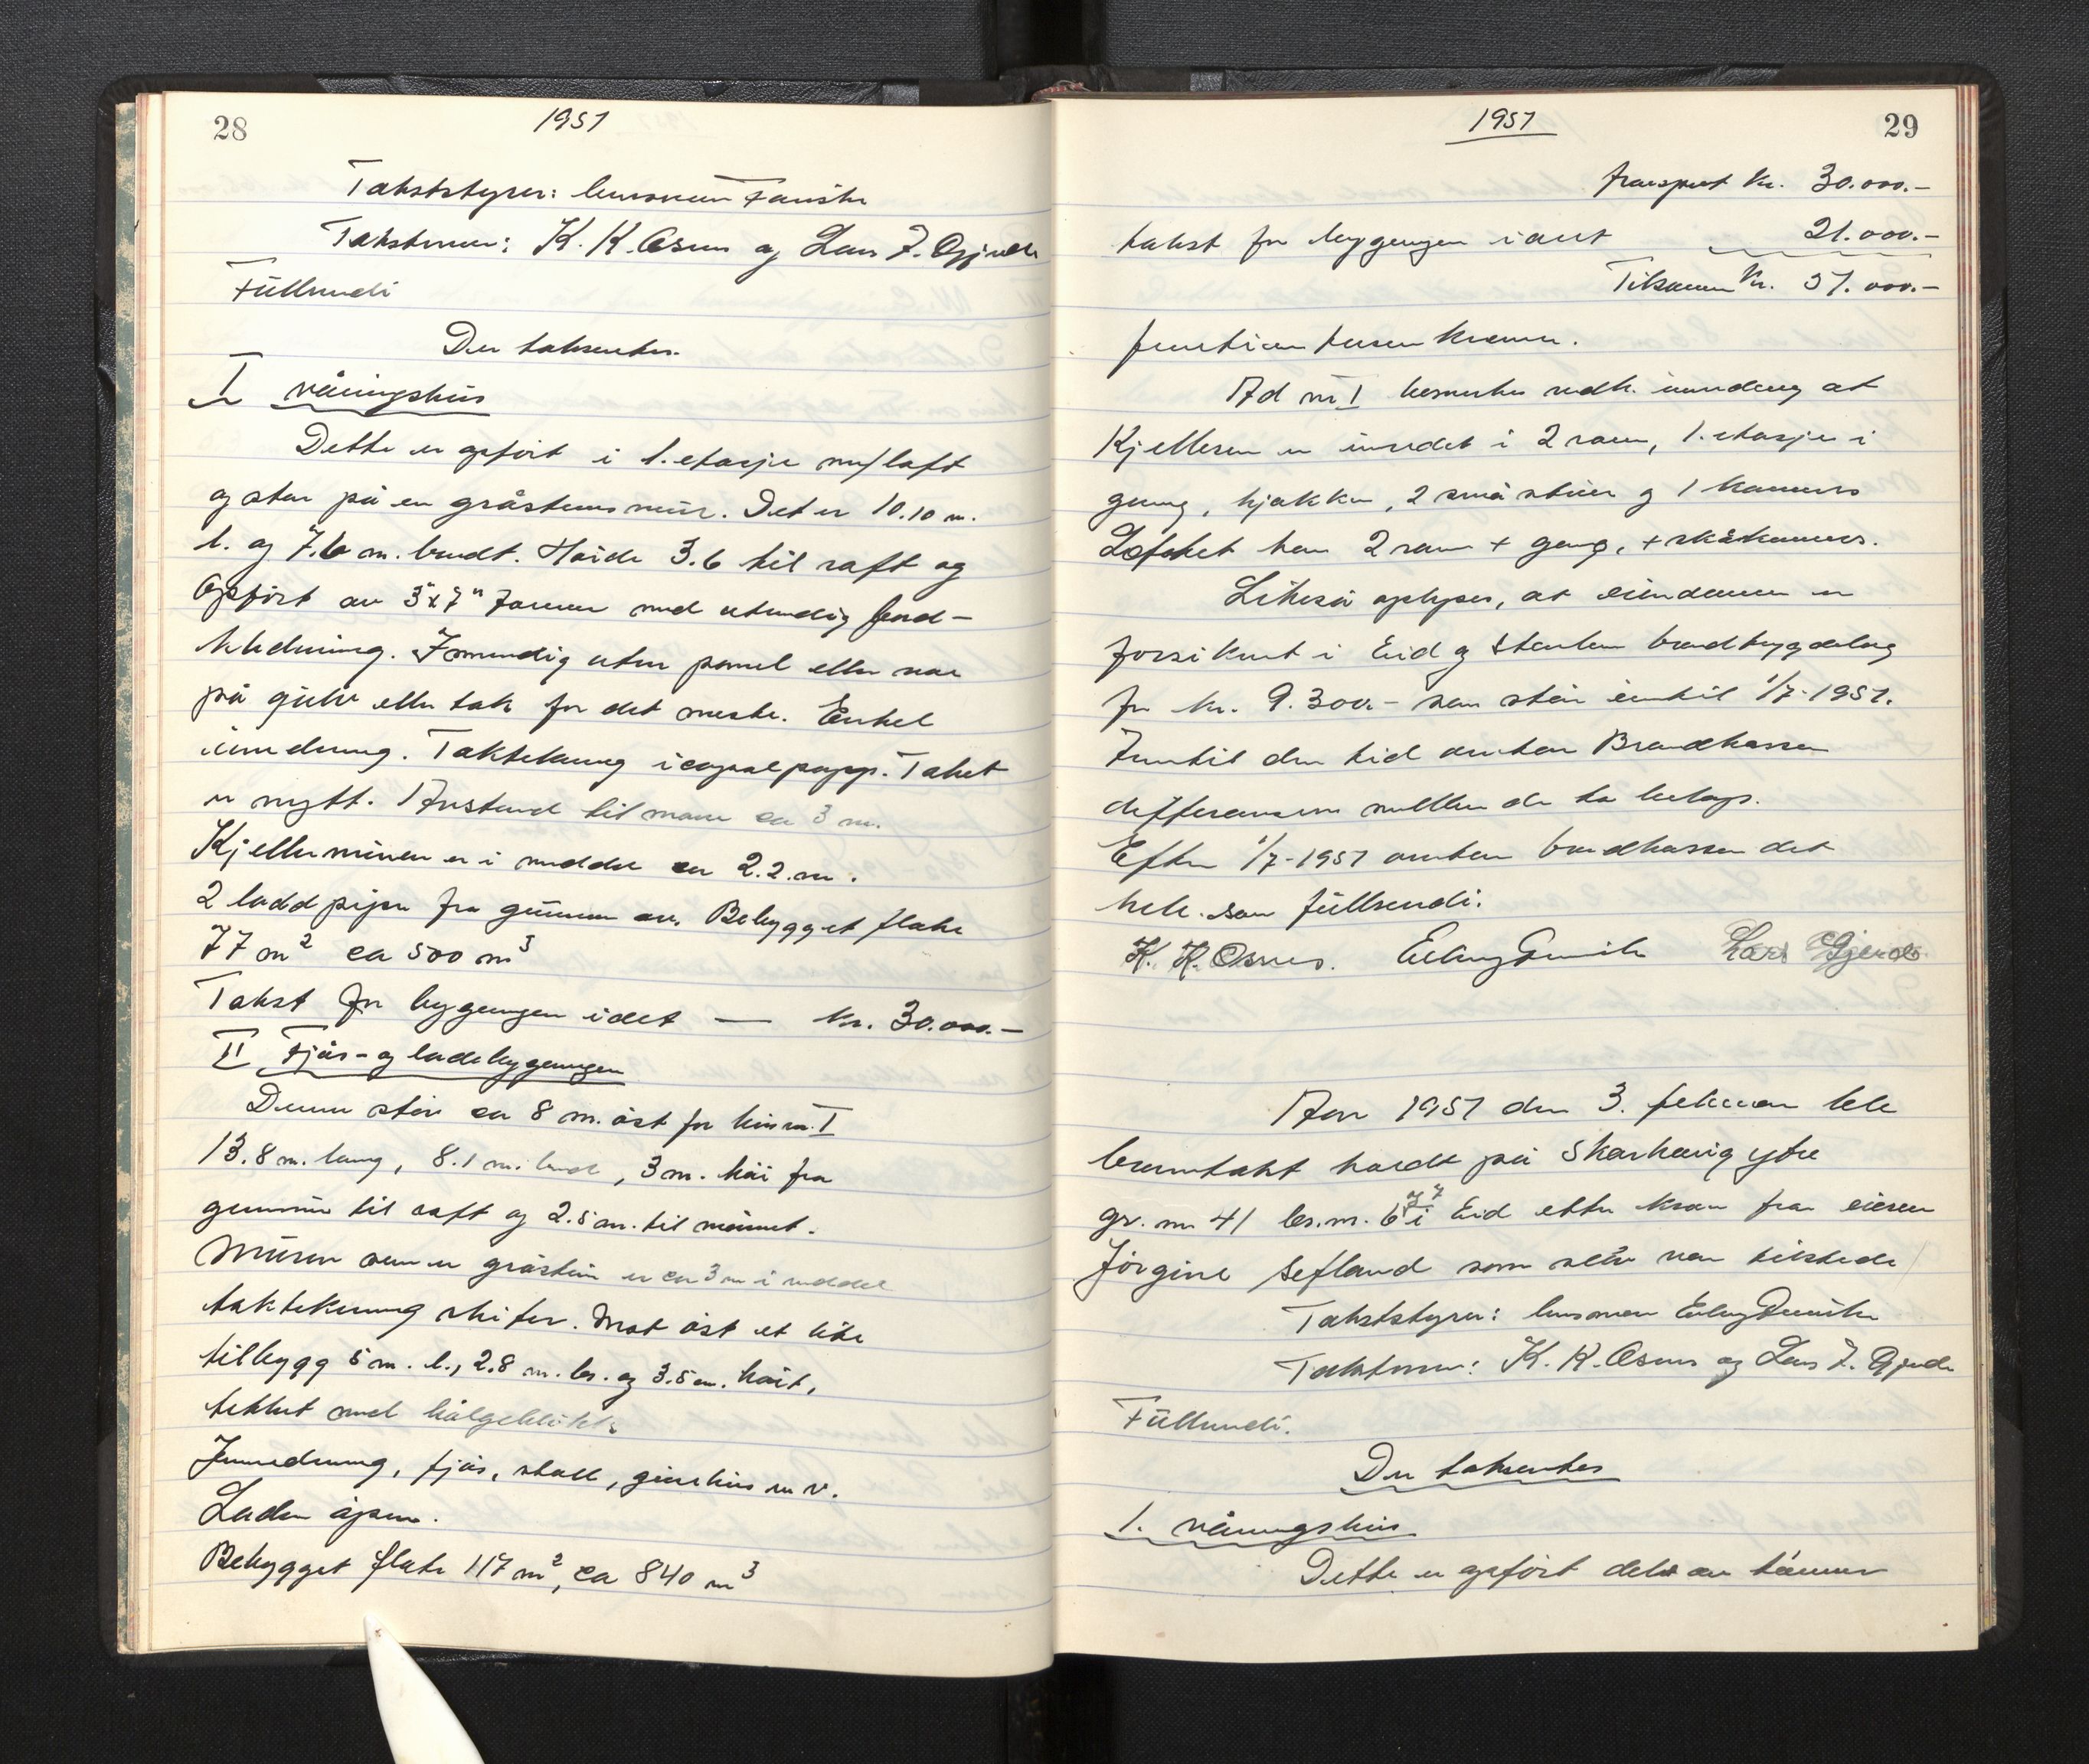 28
1951
Takststyrer: lensmann
Takstmenn: K. K. Osnes og Lars J. Gjerde
Füllsendi
Der taksertes.
I våningshüs
Dette er opført i 1. etasje m/loft
og står på en gråsteins mür. Det er 10.10 m.
l. og 7.6 m. bredt. Høide 3.6 til raft og
Opført av 3"x7" tømmer med utvendig bord-
kledning. Innvendig uten panel eller
på gulv eller tak for det meste. Enkel
innredning. Taktekning icopalpapp. Taket
er nytt. Avstand til ca 3 m.
Kjellermüren er i middel ca 2.2. m.
2 ladd piper fra grünnen av. Bebygget flate
77 m² ca 500 m³
Takst for bygningen idet — kr. 30.000.-
II Fjøs- og ladebygningen
Denne står ca 8 m. øst for hüs nr. I
13.8 m. lang, 8.1 m. bred, 3 m. høi fra
grunnmür til raft og 2.5 m. til mønnet.
Müren som er gråstein er ca 3 m i middel
taktekning skifer. Mot øst et lite
tilbygg 5 m. l., 2.8 m. br. og 3.5 m. høit,
tekket med bølgeblikk
Innredning, fjøs, stall, m v.
Laden åpen.
Bebygget flate 117 m², ca 840 m³
1951
29
Transport kr. 30.000.-
takst for bygningen idet 21.000.-
Tilsammen kr. 51.000.-
femtien tusen kroner.
Ad nr I bemerkes vedk. innredning at
Kjelleren er innredet i 2 rom, 1. etasje i
gang, kjøkken, 2 små stüer og 1 kammers
Loftet har 2 rom + gang, + skåkammers.
Likeså oplyses, at eiendommen er
forsikret i Eid og Stårheim brandbygdelag
for kr. 9.300.- som står inntil 1/7-1951.
Inntil den tid overtar Brandkassen
differansen mellem de to beløp.
Efter 1/7-1951 overtar brandkassen det
hele som füllsendi.
K. K. Osnes. Erling Lars Gjerde
Aar 1951 den 3. februar ble
branntakst holdt på Skarhaug ytre
gr. nr 41 br. nr. 6 og 7 i Eid etter krav fra eieren
Jørgine Sefland som selv var tilstede
Takststyrer: lensmann Erling
Takstmenn: K. K. Osnes og Lars J. Gjerde
Füllsendi.
Der taksertes
1. våningshüs
Dette er opført dels av tømmer